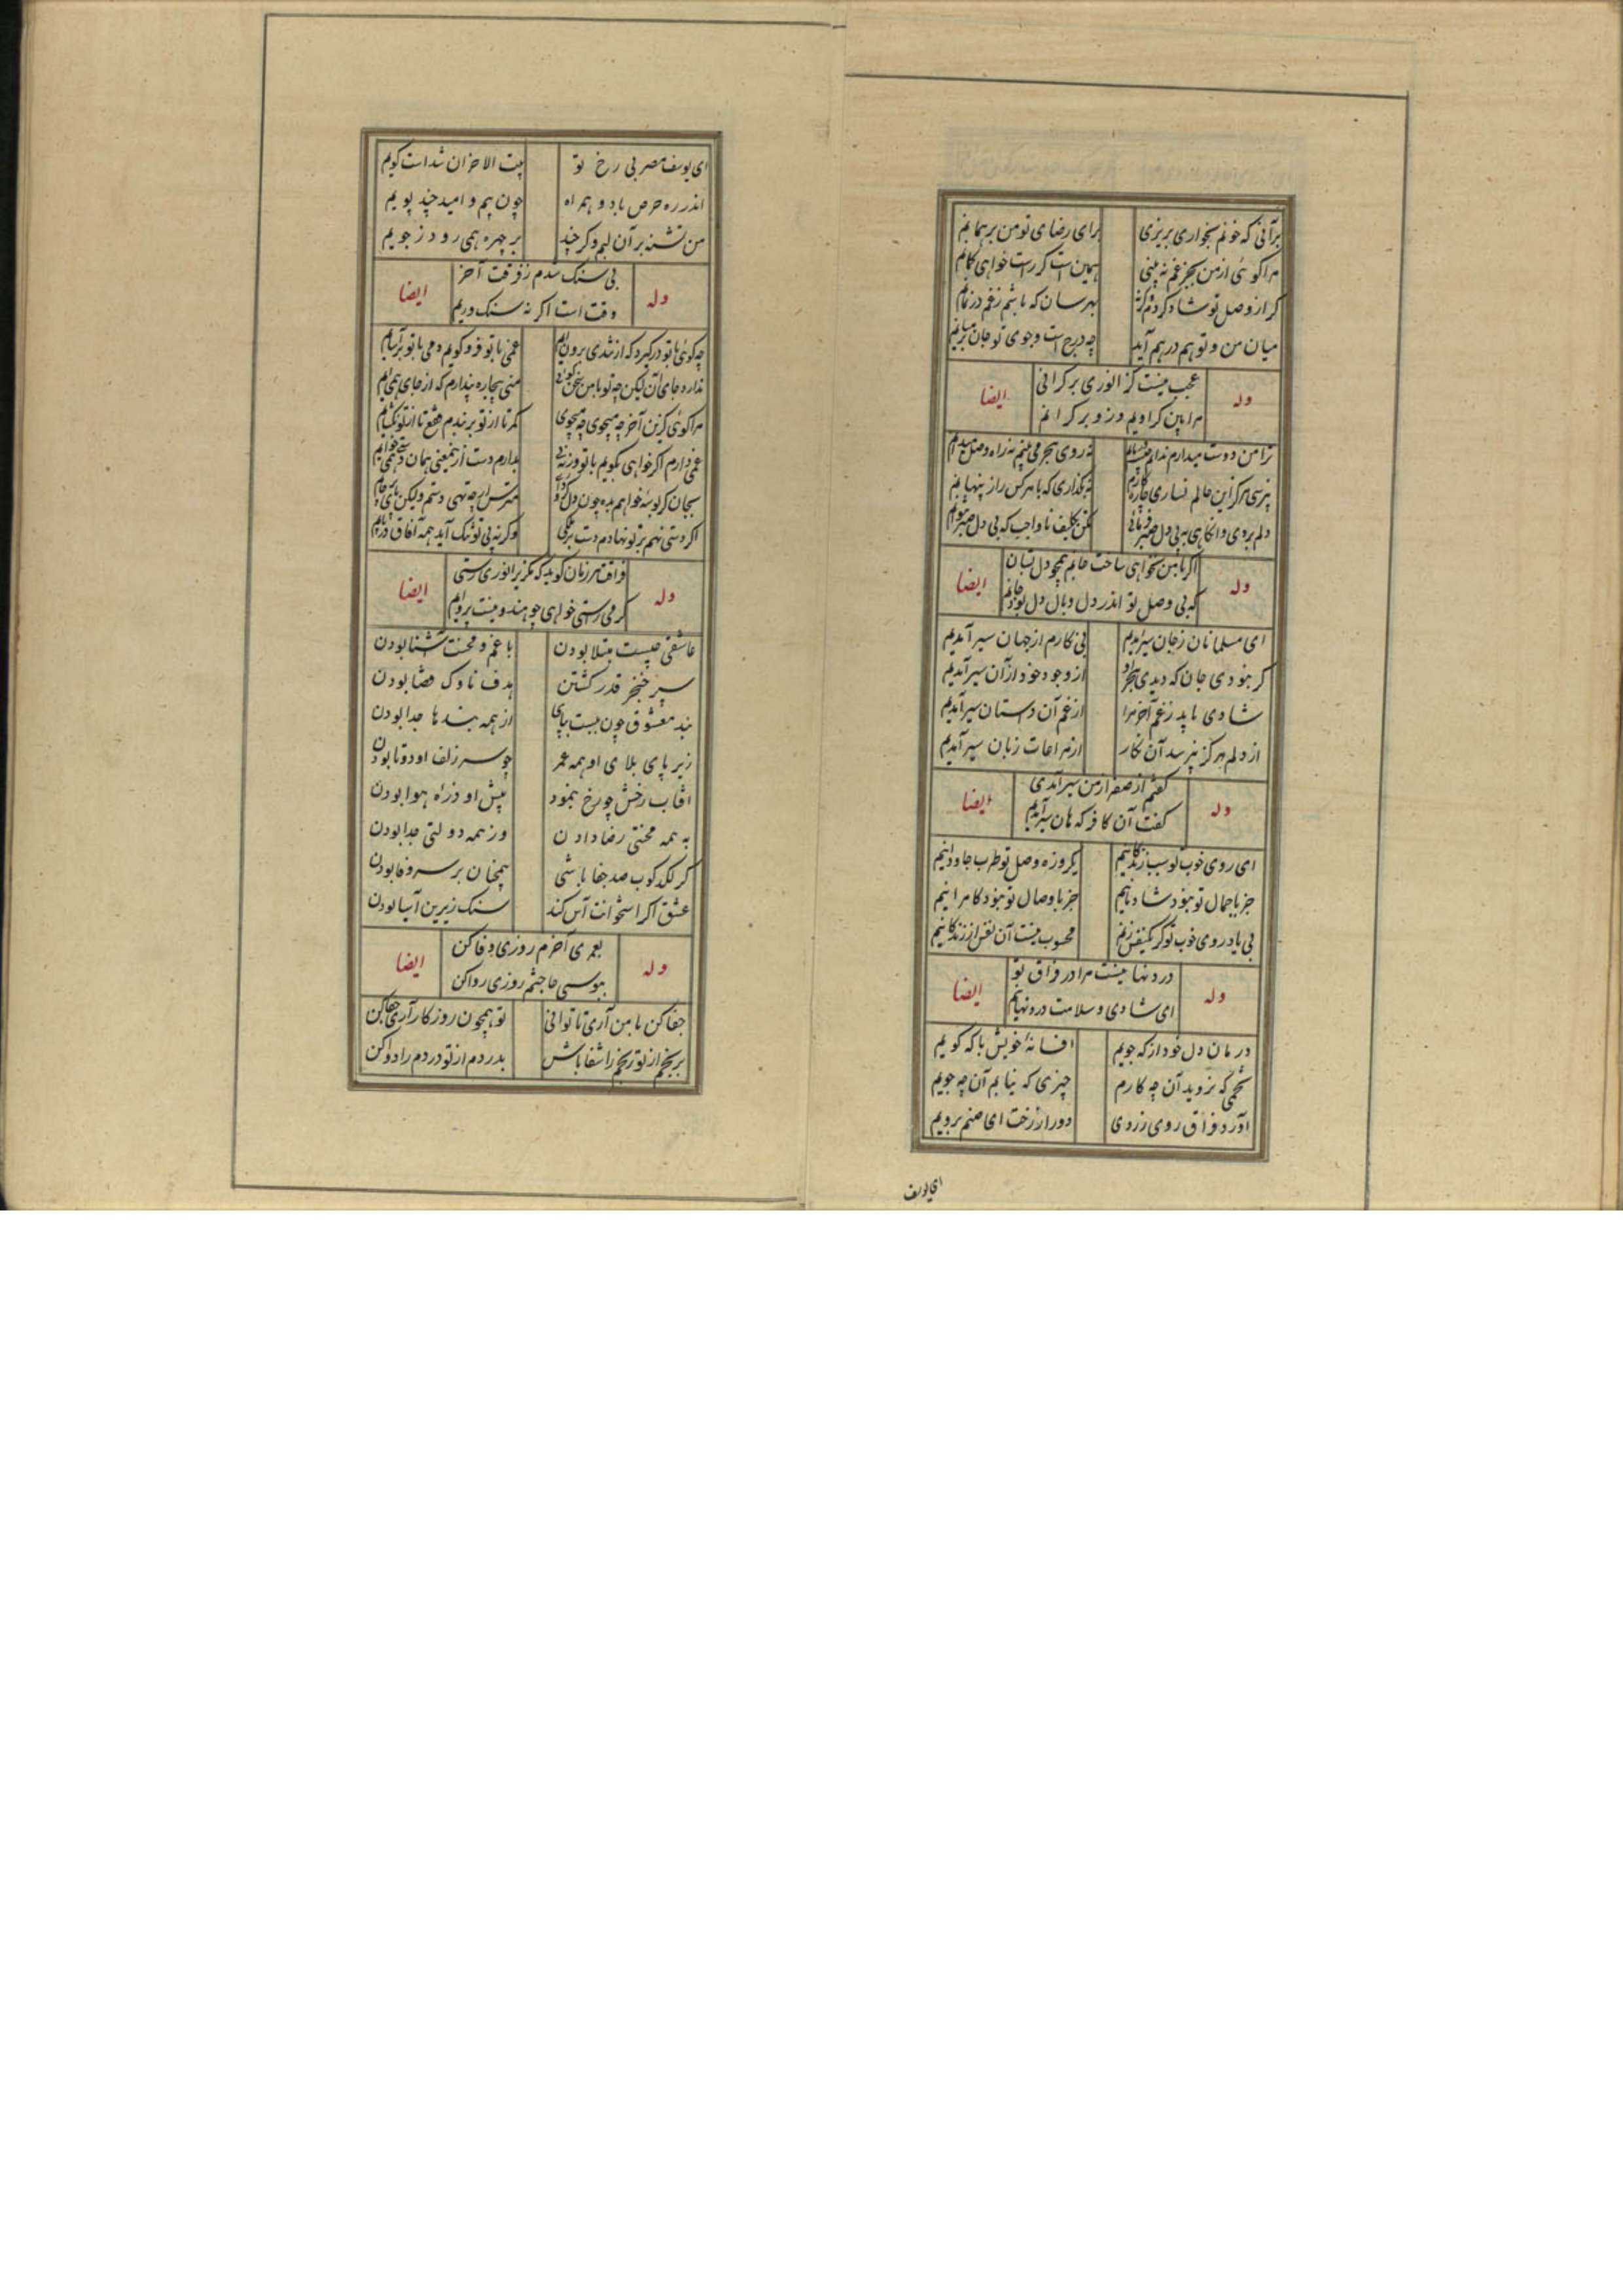 برآنی که خونم بخواری بریزی برای رضای تو من برهمانم
مرا کوئی از من بجز غم نه بینی همین است کر راست خواهی کمانم
کر از وصل تو شاد کردم وکرنه بهرسان که باشم زغم در نمانم
میان من و تو هم درهم آید چه درج است وجوی تو جان
وله عجب نیست کز انوری بر کرانی ایضا
مرا بین کز اویم وزو بر کرانم
ترا من دوست میدارم ندانم نه روی هجر می بینم نه راه وصل میدانم
نپرسی هرکز این حالم نسازی چاره کارم نه بکذاری که با هرکس راز پنهانم
دلم بردی و انکاهی به بی دل صبر فرمائی مکن تکلیف ناواجب که بی دل صبر نتوانم
وله اکر با من نخواهی ساخت جانم همچو دل بستان ایضا
که بی وصل تو اندر دل وبال دل بود جانم
ای مسلمانان زجان سیر آمدیم بی نکارم از جهان سیر آمدیم
کر نبودی جان که دیدی هجر او از وجود خود از آن سیر آمدیم
شادی باید زغم آخر مرا از غم آن دلستان سیر آمدیم
از دلم هرکز نپرسد آن نکار از مراعات زبان سیر آمدیم
وله کفتم از صفرا ز من سیر آمدی ایضا
کفت آن کافر که هان سیر آمدیم
ای روی خوب تو سبب زندکانیم یکروزه وصل تو طرب جاودانیم
جز با جمال تو نبود شادمانیم جز با وصال تو نبود کامرانیم
بی یاد روی خوب تو کر یکنفس زنم محسوب نیست آن نفس از زندکانیم
وله درد نهانیست مرا در فراق تو ایضا
ای شادی و سلامت درد نهانیم
درمان دل خود از که جویم افسانهٔ خویش با که کویم
تخمی که نروید آن چه کارم چیزی که نیابم آن چه جویم
آورد فراق روی زردی دور از رخت ای صنم برویم
ای یوسف
ای یوسف مصر بی رخ تو بیت الاحزان شد است کویم
اندر ره حرص باد و همراه چون بیم و امید چند پویم
من تشنه بر آن لبم و کر چند بر چهره همی رود ز جویم
وله بی سنک شدم ز فرقت آخر ایضا
وقت است اکر نه سنک و رویم
چه کوئی با تو درکیرد که از بندی برون آیم غمی با تو فرو کویم دمی با تو برآسایم
ندارد جای آن لیکن چه تو با من سخن کوئی منی بیچاره پندارم که از جای همی آیم
مرا کوئی کزین آخر چه میجوی چه میجوی کمر تا از تو بربندم فقع تا از تو بکشایم
غمی دارم اکر خواهی بکویم با تو ورنه نی بدارم دست ازینمعنی همان دستی همی خایم
بجان کر بوسهٔ خواهم بده چون دل مترس ارچه تهی دستم ولیکن پای
اکر دستی نهم بر تو نهادم دست وکرنه بی تو تنک آید همه آفاق در پایم
وله فراقت هر زمان کوید که بکریز انوری رستی ایضا
کر می راستی خواهی چو هندو نیست پروایم
عاشقی چیست مبتلا بودن با غم و محنت آشنا بودن
سپر خنجر قدر کشتن هدف ناوک قضا بودن
بند معشوق چون ببست بپای از همه بندها جدا بودن
زیر پای بلای او همه عمر چو سر زلف او دوتا بودن
آفتاب رخش چو رخ بنمود پیش او ذرهٔ هوا بودن
به همه محنتی رضا دادن وز همه دولتی جدا بودن
کر لکدکوب صد جفا باشی همچنان بر سر وفا بودن
عشق اکر استخوانت آس کند سنک زیرین آسیا بودن
وله بعمری آخرم روزی وفا کن ایضا
ببوسی حاجتم روزی روا کن
جفا کن با من آری تا توانی تو همچون روزکار آری جفا کن
برنجم از تو رنجم را شفا باش بدردم از تو دردم را دوا کن